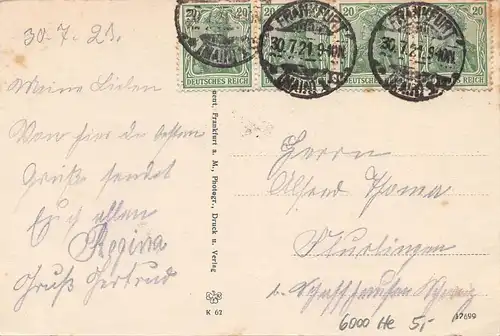 30.7.21.
Meine Lieben
Von hier die besten
Grüße sendet
Euch allen
Regina
Gruß Gertrud
20 20 20 20
DEUTSCHES REICH DEUTSCHES REICH DEUTSCHES REICH
FRANKFURT
30.7.21.9-10N.
(MAIN)
FRANKFURT
30.7.21.9-10N.
(MAIN)
Frankfurt a. M., Photogr., Druck u. Verlag
K 62
Herrn
Alfred Thoma
Flurlingen
b. Schaffhausen Schweiz
6000 He 5,-